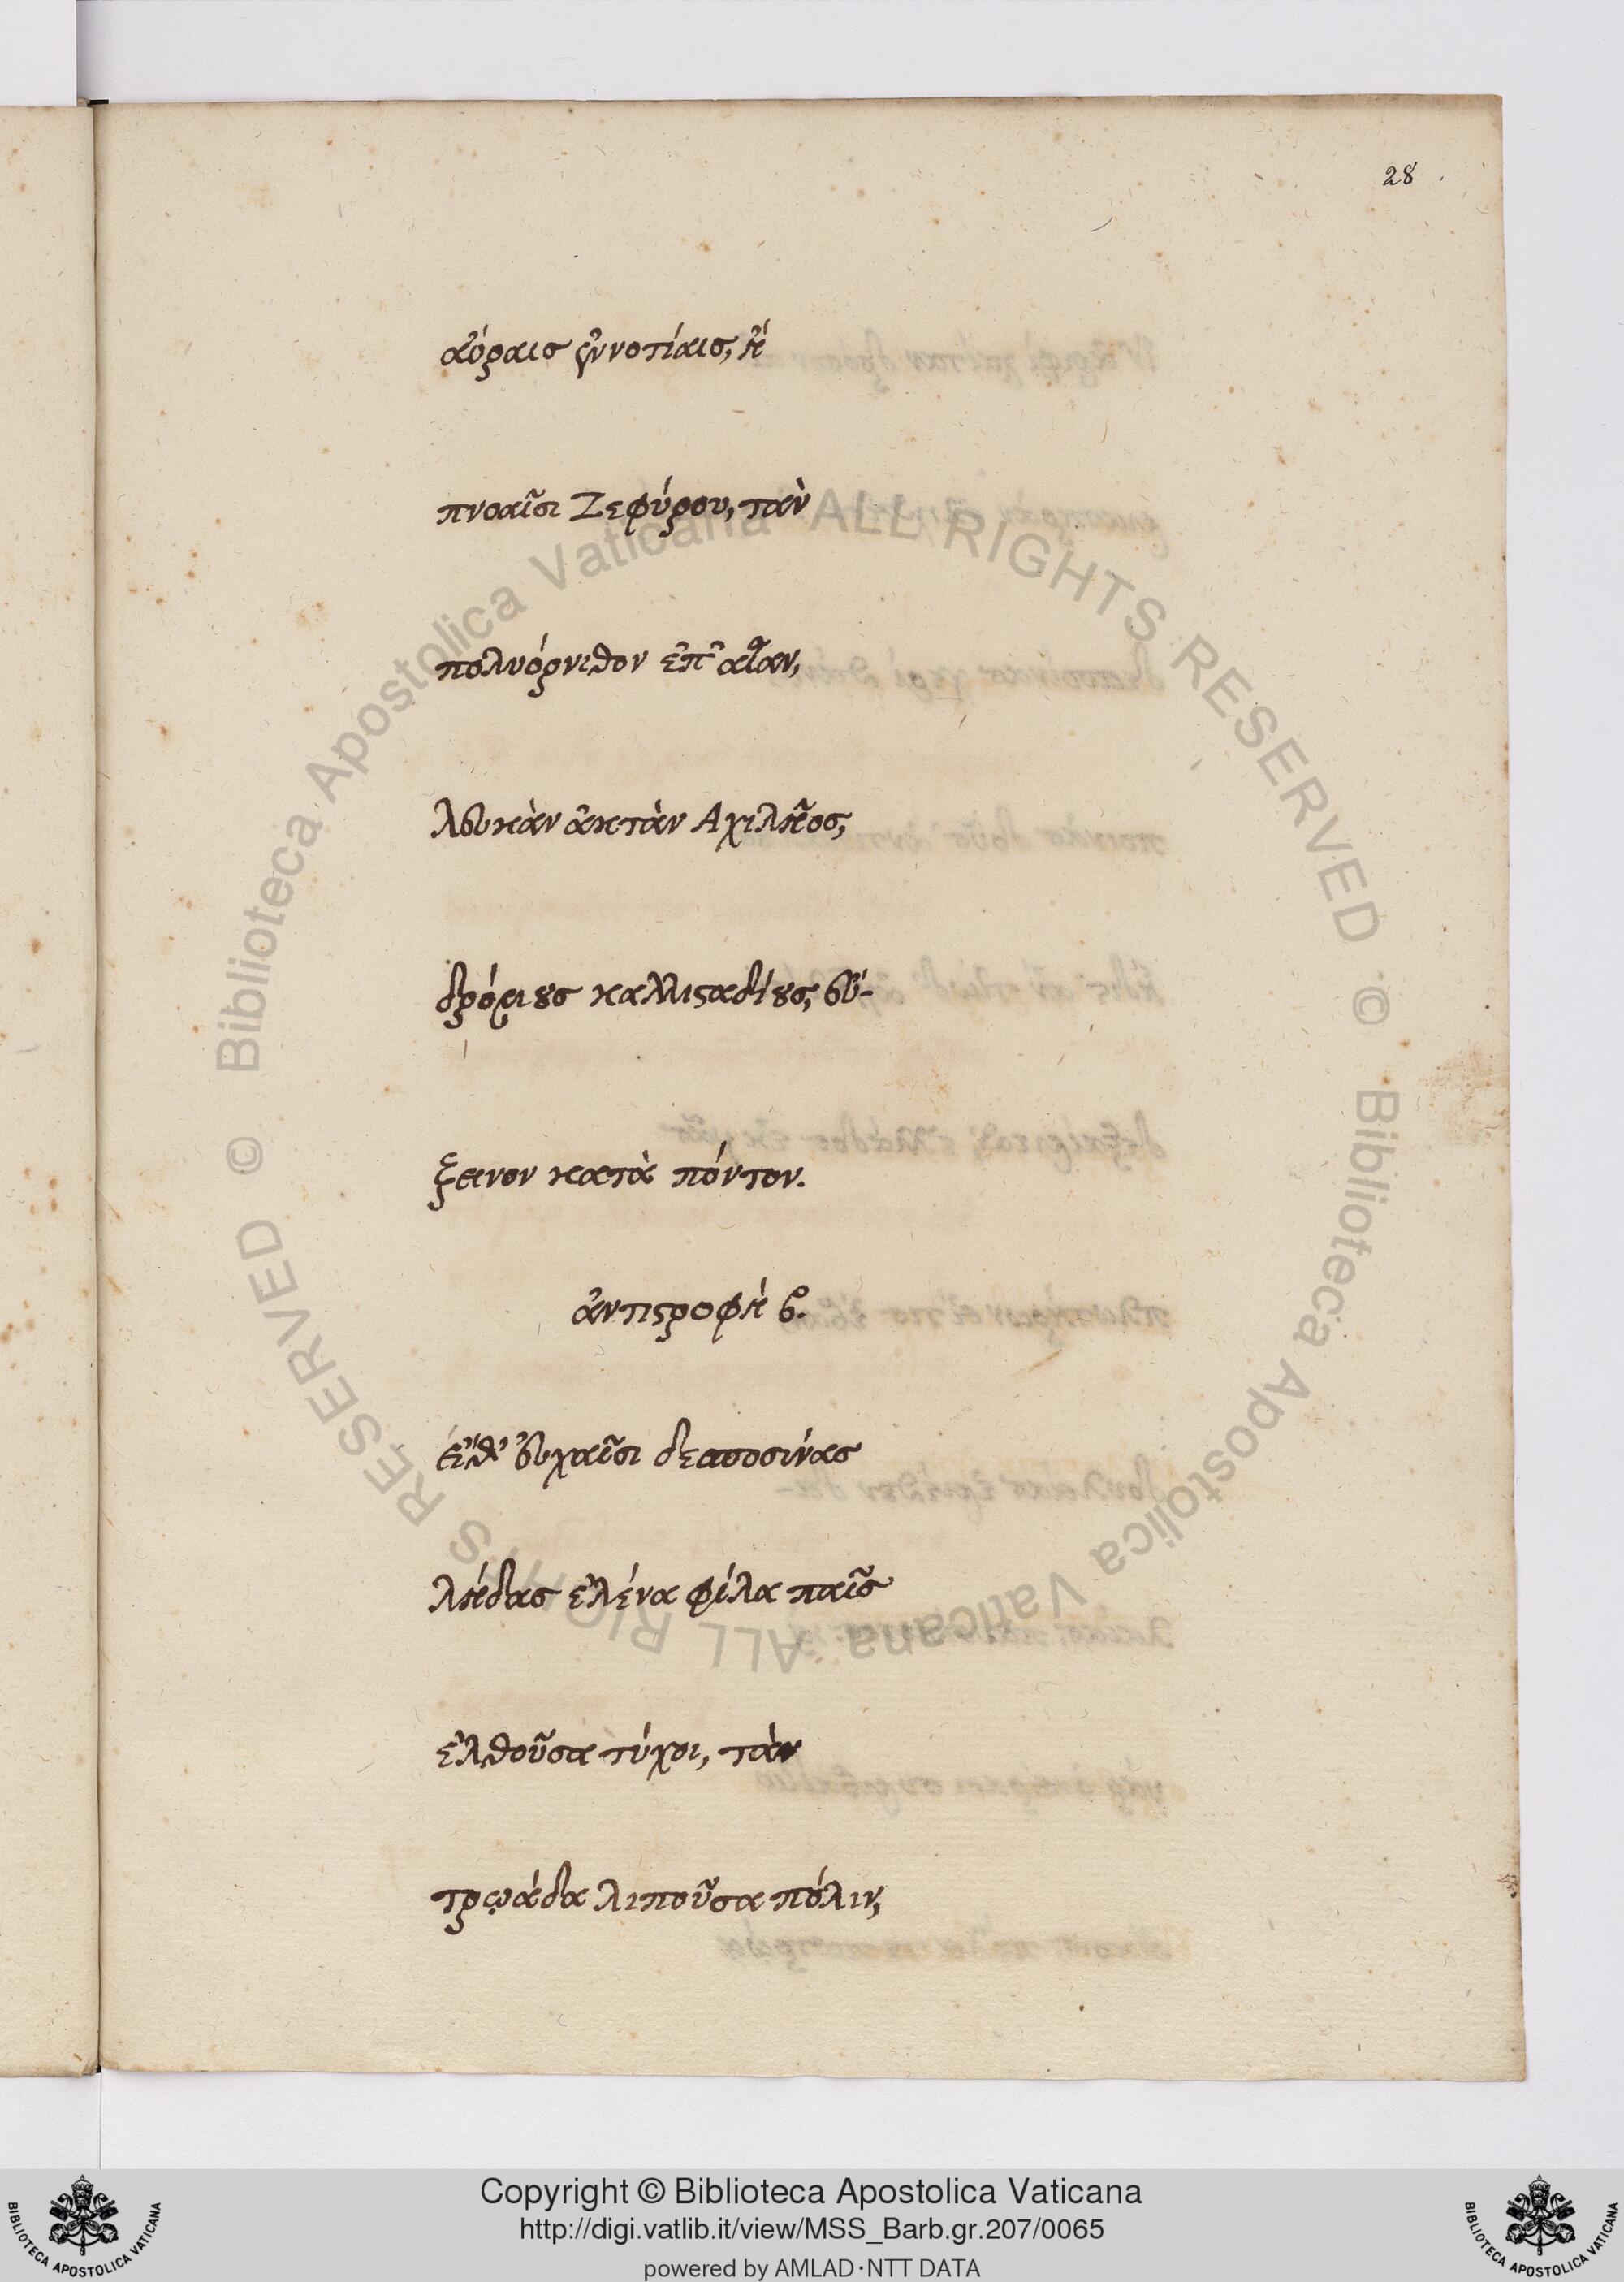 28
αὔραις ἐννοτίαις, ἢ
πνοαῖσι Ζεφύρου, τὰν
πολυόρνιθον ἐπ' αἶαν,
λευκὰν ἀκτὰν Αχιλῆος,
δρόμους καλλισαδίους, εὔ-
ξεινον κατὰ πόντον.
ἀντιστροφὴ β.
εἴθ' εὐχαῖσι δεσποσίνας
λήδας ἑλένα φίλα παῖς
ἐλθοῦσα τύχοι, τὰν
τρῳάδα λιποῦσα πόλιν,
© Biblioteca Apostolica Vaticana ALL RIGHTS RESERVED © Biblioteca Apostolica Vaticana ALL RIGHTS RESERVED
BIBLIOTECA APOSTOLICA VATICANA
Copyright © Biblioteca Apostolica Vaticana
http://digi.vatlib.it/view/MSS_Barb.gr.207/0065
powered by AMLAD·NTT DATA
BIBLIOTECA APOSTOLICA VATICANA